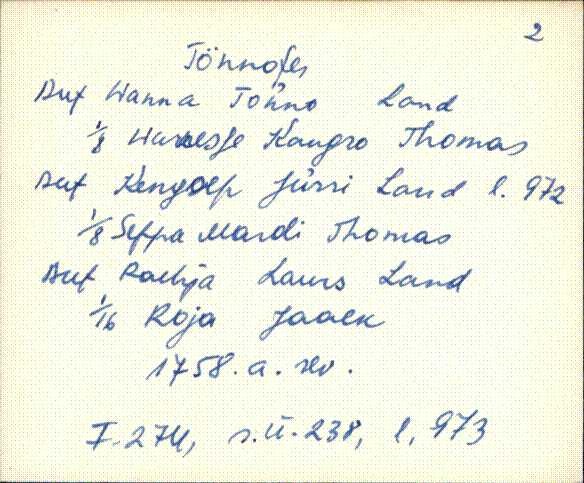 2
Tönnofer
Auf Wanna Tönno Land
1/8 Kangro Thomas
Auf Jürri Land l. 972
1/8 Seppa Mardi Thomas
Auf Laurs Land
1/16 Roja Jaack
1758. a. rev.
F. 274, s. ü. 238, l. 973